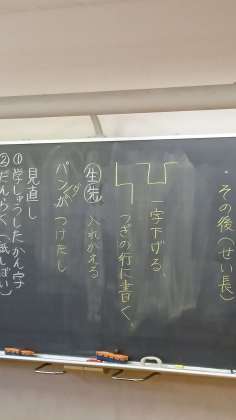 ・その後(せい長)
一字下げる、
つぎの行に書く、
生先 入れかえる
パンが つけたし
ダ
見直し
①学しゅうしたかん字
②だんらく